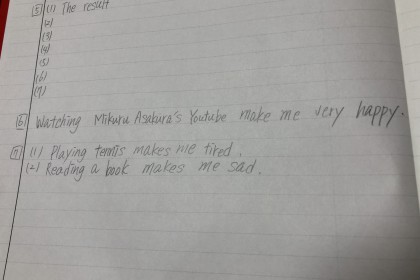 5 (1) The result
(2)
(3)
(4)
(5)
(6)
(7)
6 Watching Mikuru Asakura's Youtube make me very happy.
7 (1) Playing tennis makes me tired.
(2) Reading a book makes me sad.